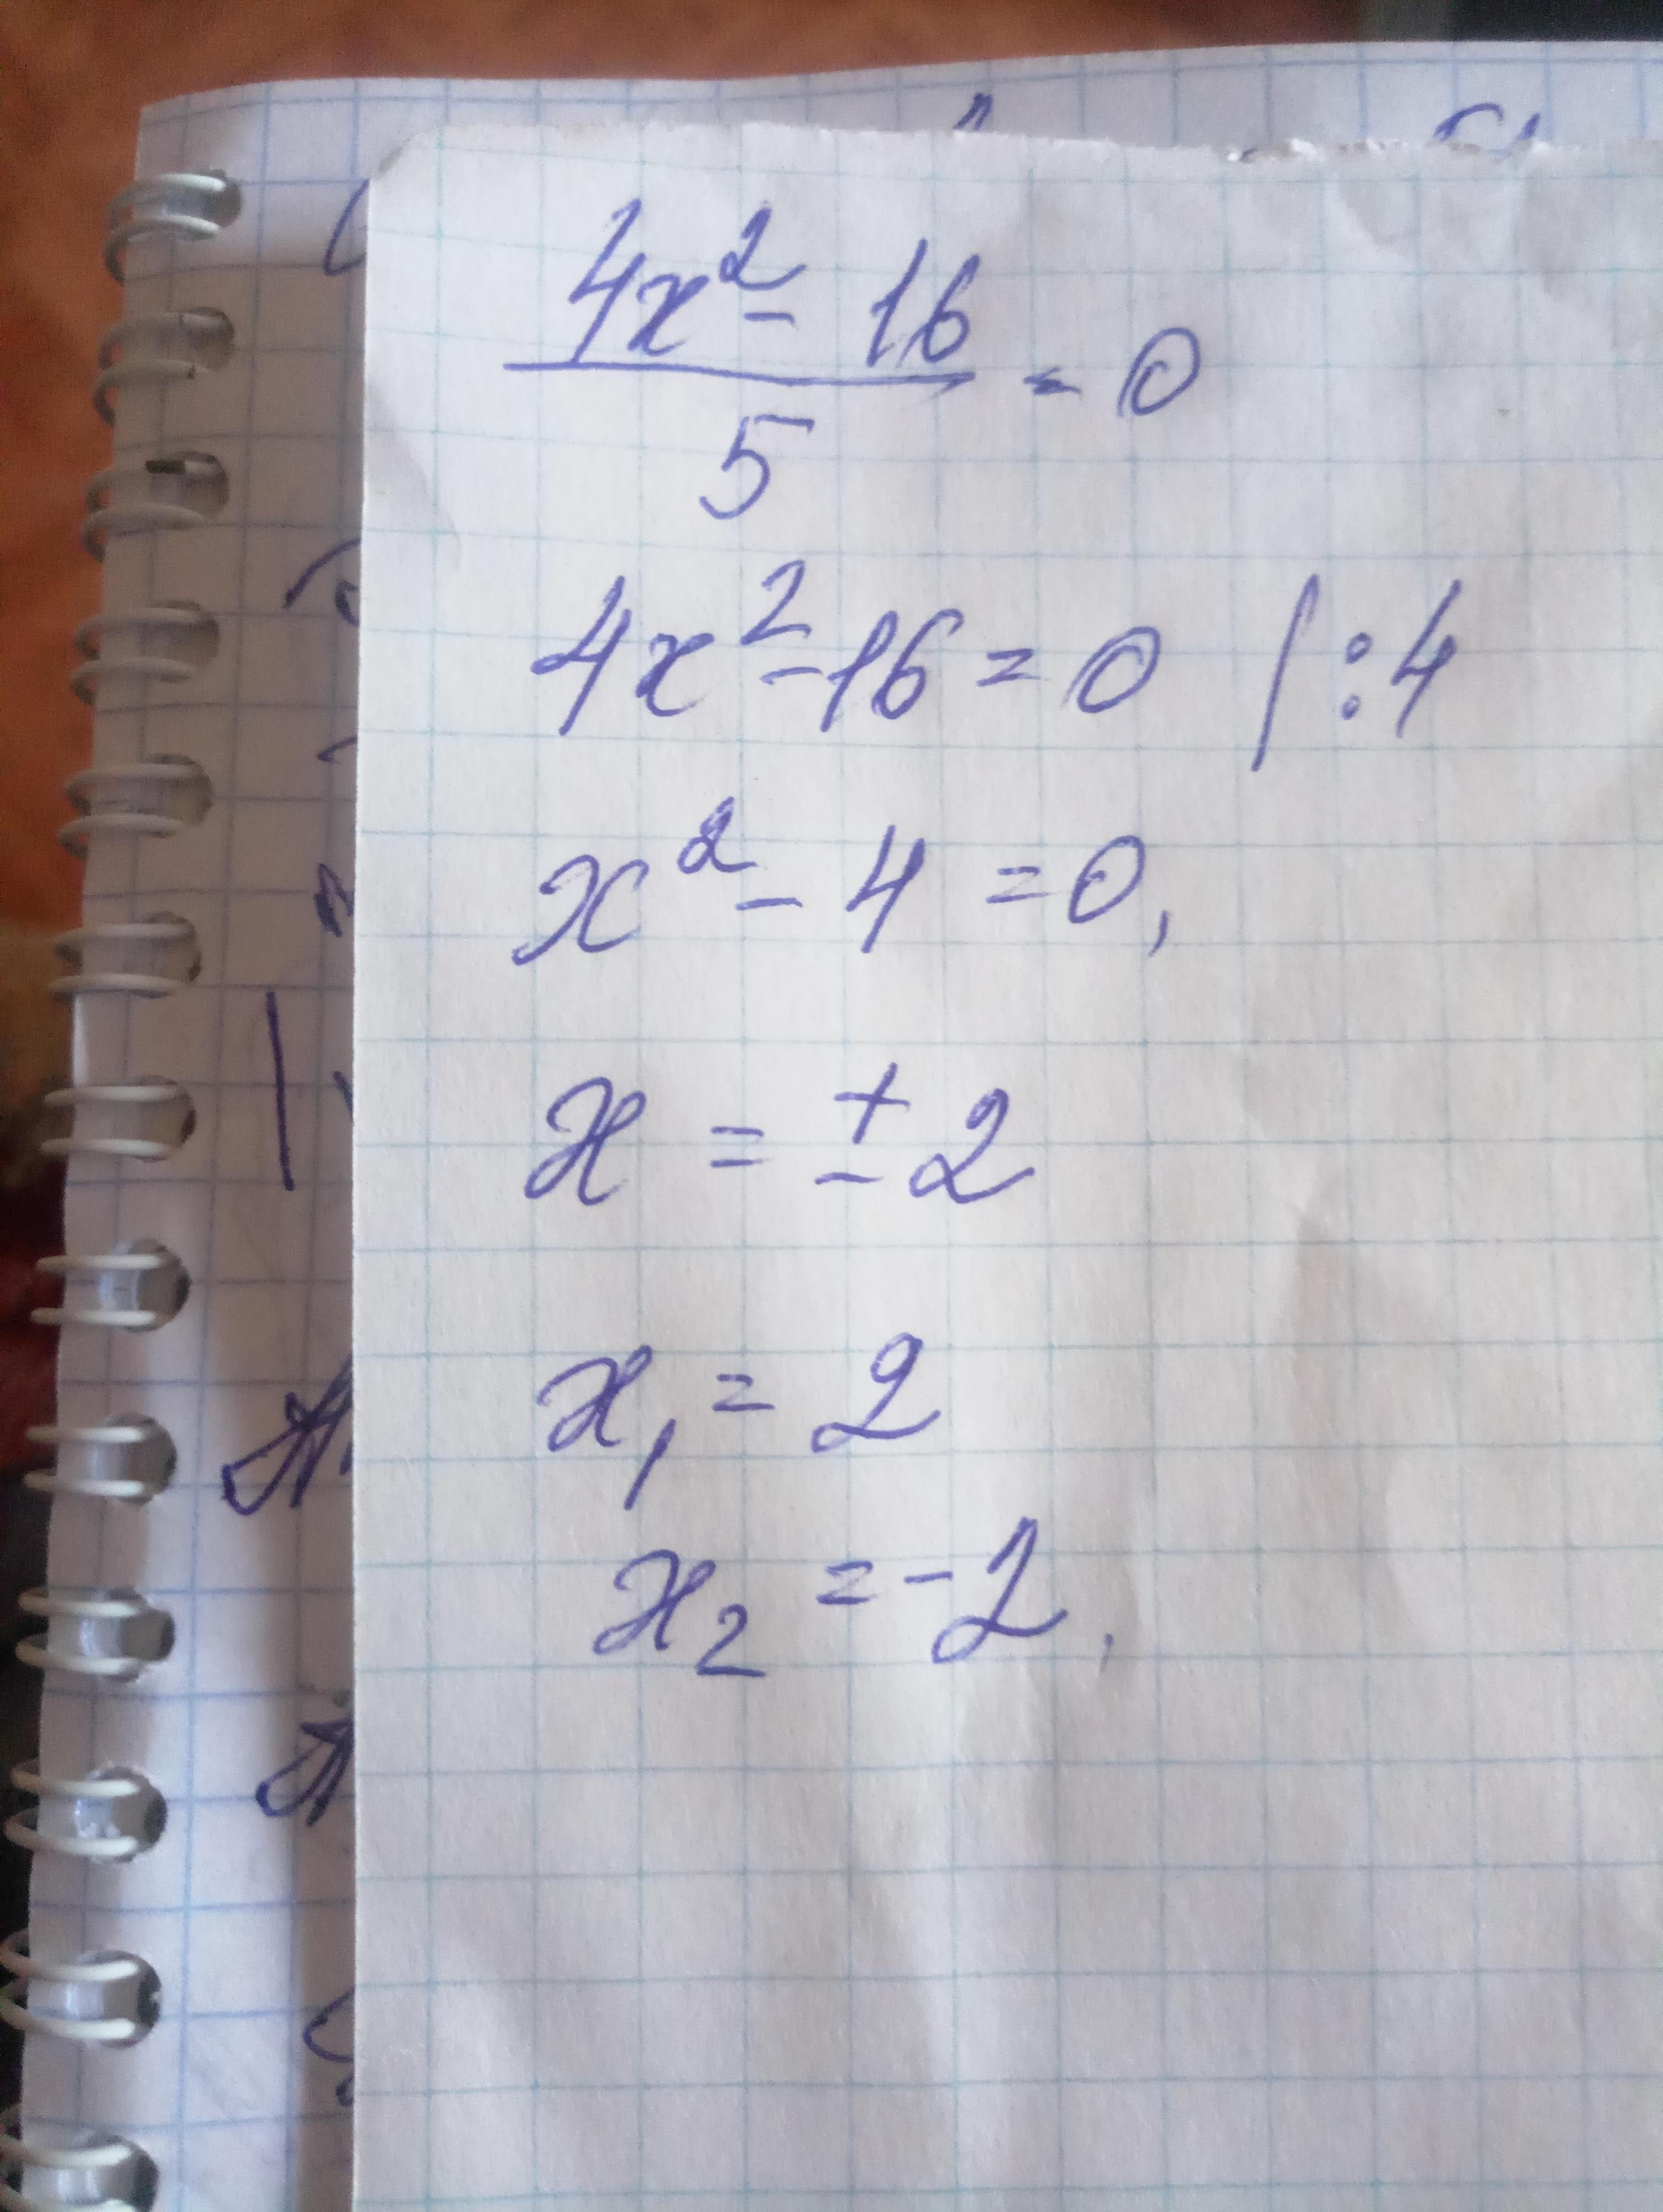 4x² - 16
5
= 0
4x² - 16 = 0 | : 4
x² - 4 = 0,
x = ± 2
x₁ = 2
x₂ = -2,